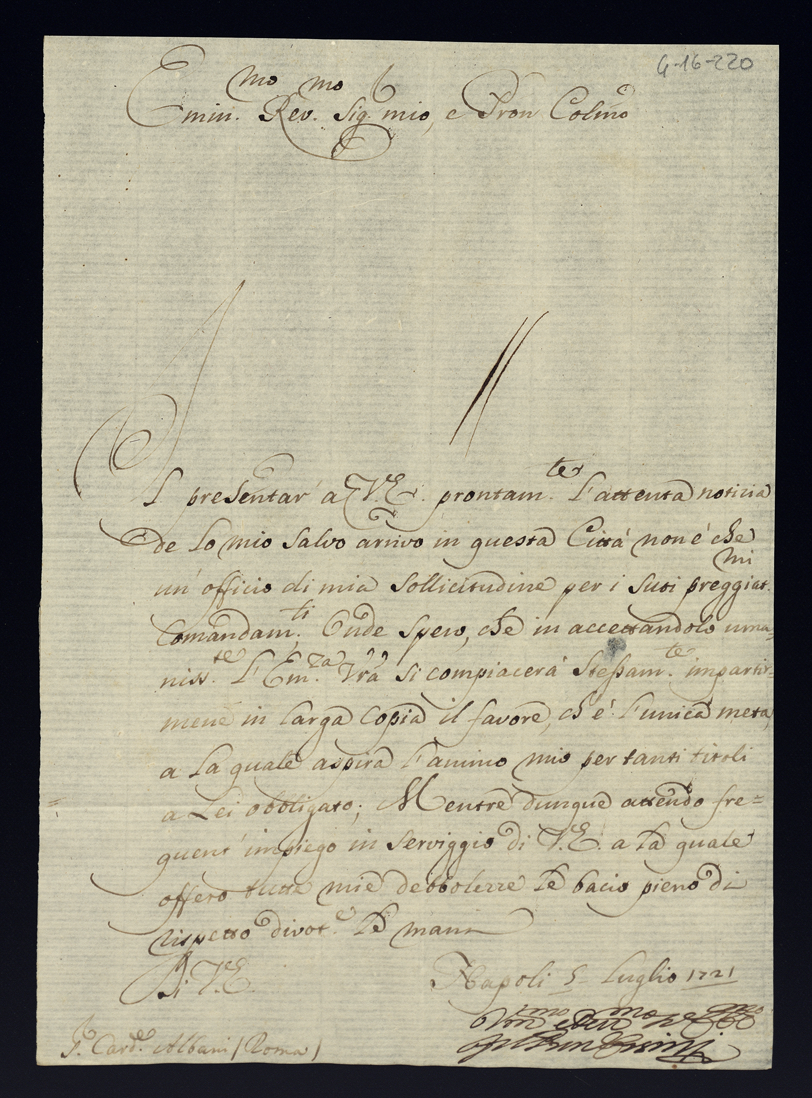 G-16-220
Emin.mo Rev.mo Sig.r mio, e Pron Colmo
Il presentar' a V.E. prontam.te l'attenta noticia
de lo mio salvo arrivo in questa Città non è che
un' officio di mia sollicitudine per i suoi preggiat.mi
Comandam.ti; Onde spero, che in accettandolo uma-
niss.te l'Em.za Vrã si compiacerà stessam.te impartir-
mene in larga copia il favore, ch'è l'unica meta,
a la quale aspira l'animo mio per tanti titoli
a Lei obbligato; Mentre dunque attendo fre=
quent' impiego in serviggio di V.E. a la quale
offero tutte mie debbolezze le bacio pieno di
rispetto divot.e le mani
Di V.E.
Napoli 5 Luglio 1721
S.r Card.e Albani (Roma)